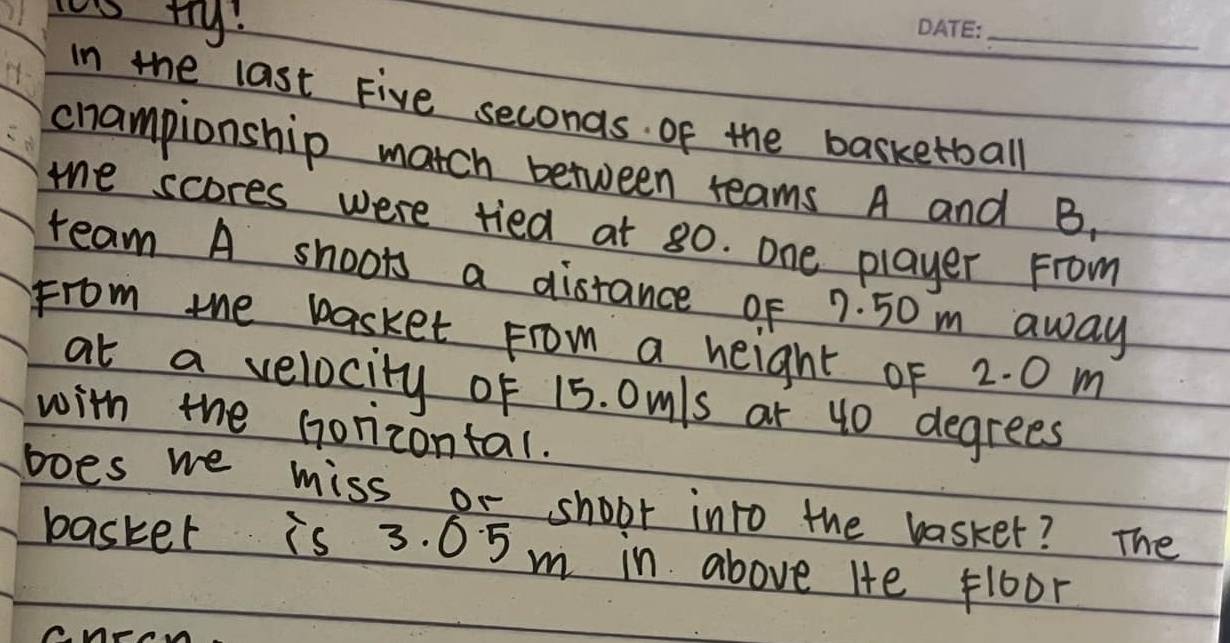 try!
DATE:
In the last Five seconds. OF the basketball
championship match between teams A and B,
the scores were tied at 80. One player From
team A shoots a distance OF 7.50 m away
From the basket From a height OF 2.0 m
at a velocity OF 15.0m/s at 40 degrees
with the Horizontal.
Does we miss or shoot into the basket? The
basket is 3.05 m in above the Floor